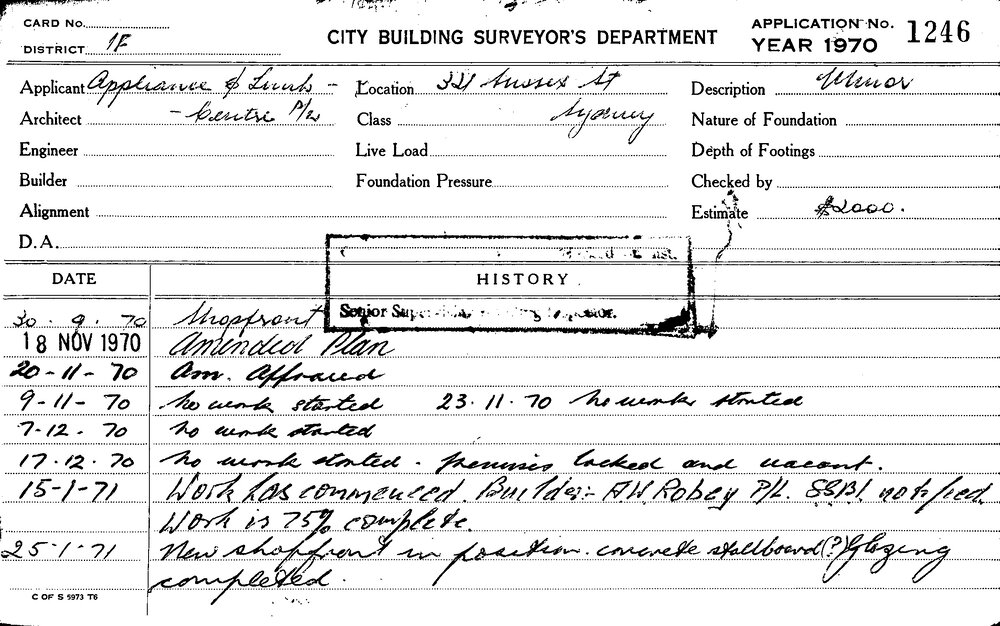 CARD No.
DISTRICT 1F
CITY BUILDING SURVEYOR'S DEPARTMENT
APPLICATION No. 1246
YEAR 1970
Applicant Appliance & Lunch -
Location 321 Sussex St
Description Minor
Architect - Centre P/L
Class Sydney
Nature of Foundation
Engineer
Live Load
Depth of Footings
Builder
Foundation Pressure
Checked by
Alignment
Estimate $2000.
D.A.
DATE
HISTORY
Senior
30. 9. 70 Shopfront
18 NOV 1970 Amended Plan
20-11-70 Am. Approved
9-11-70 no work started 23.11.70 no work started
7-12.70 no work started
17.12.70 no work started - premises locked and vacant.
15-1-71 Work has commenced. Builder:- A W Robey P/L. SSBI notified.
Work is 75% complete.
25-1-71 New shopfront in position. concrete stallboard (?) glazing
completed.
C OF S 5973 T6